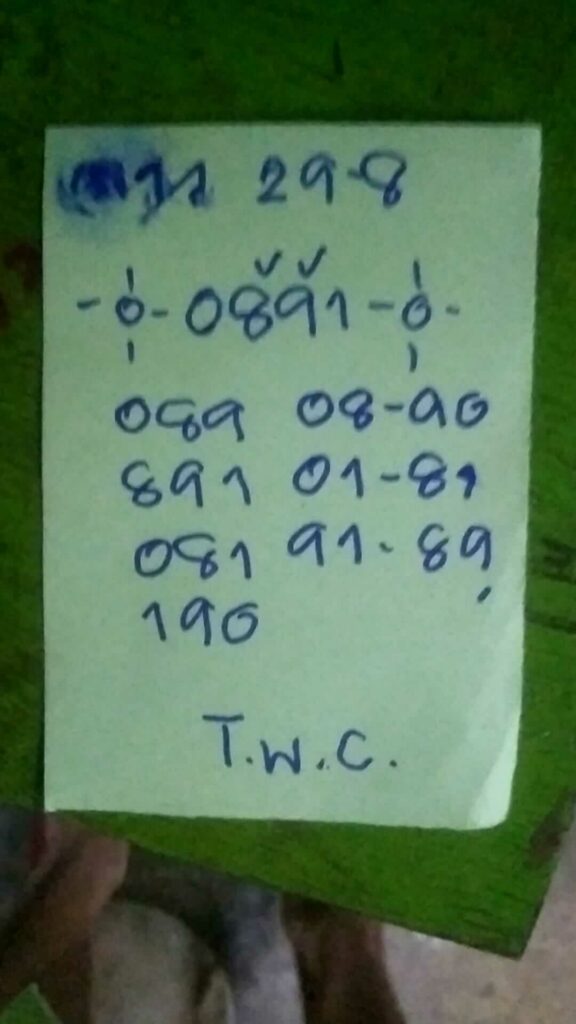 29-8
-0- 0891 -0-
089 08-90
891 01-81
081 91-89
190
T.W.C.